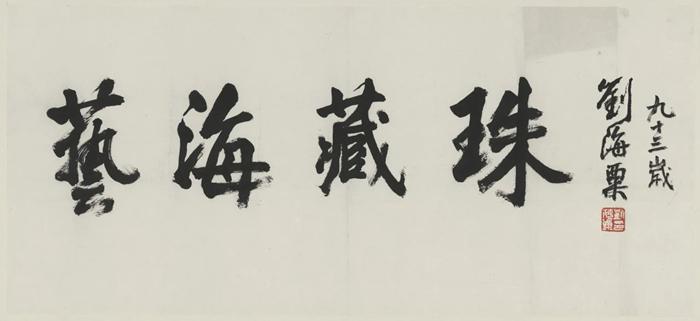 藝海藏珠
九十三歲
劉海粟